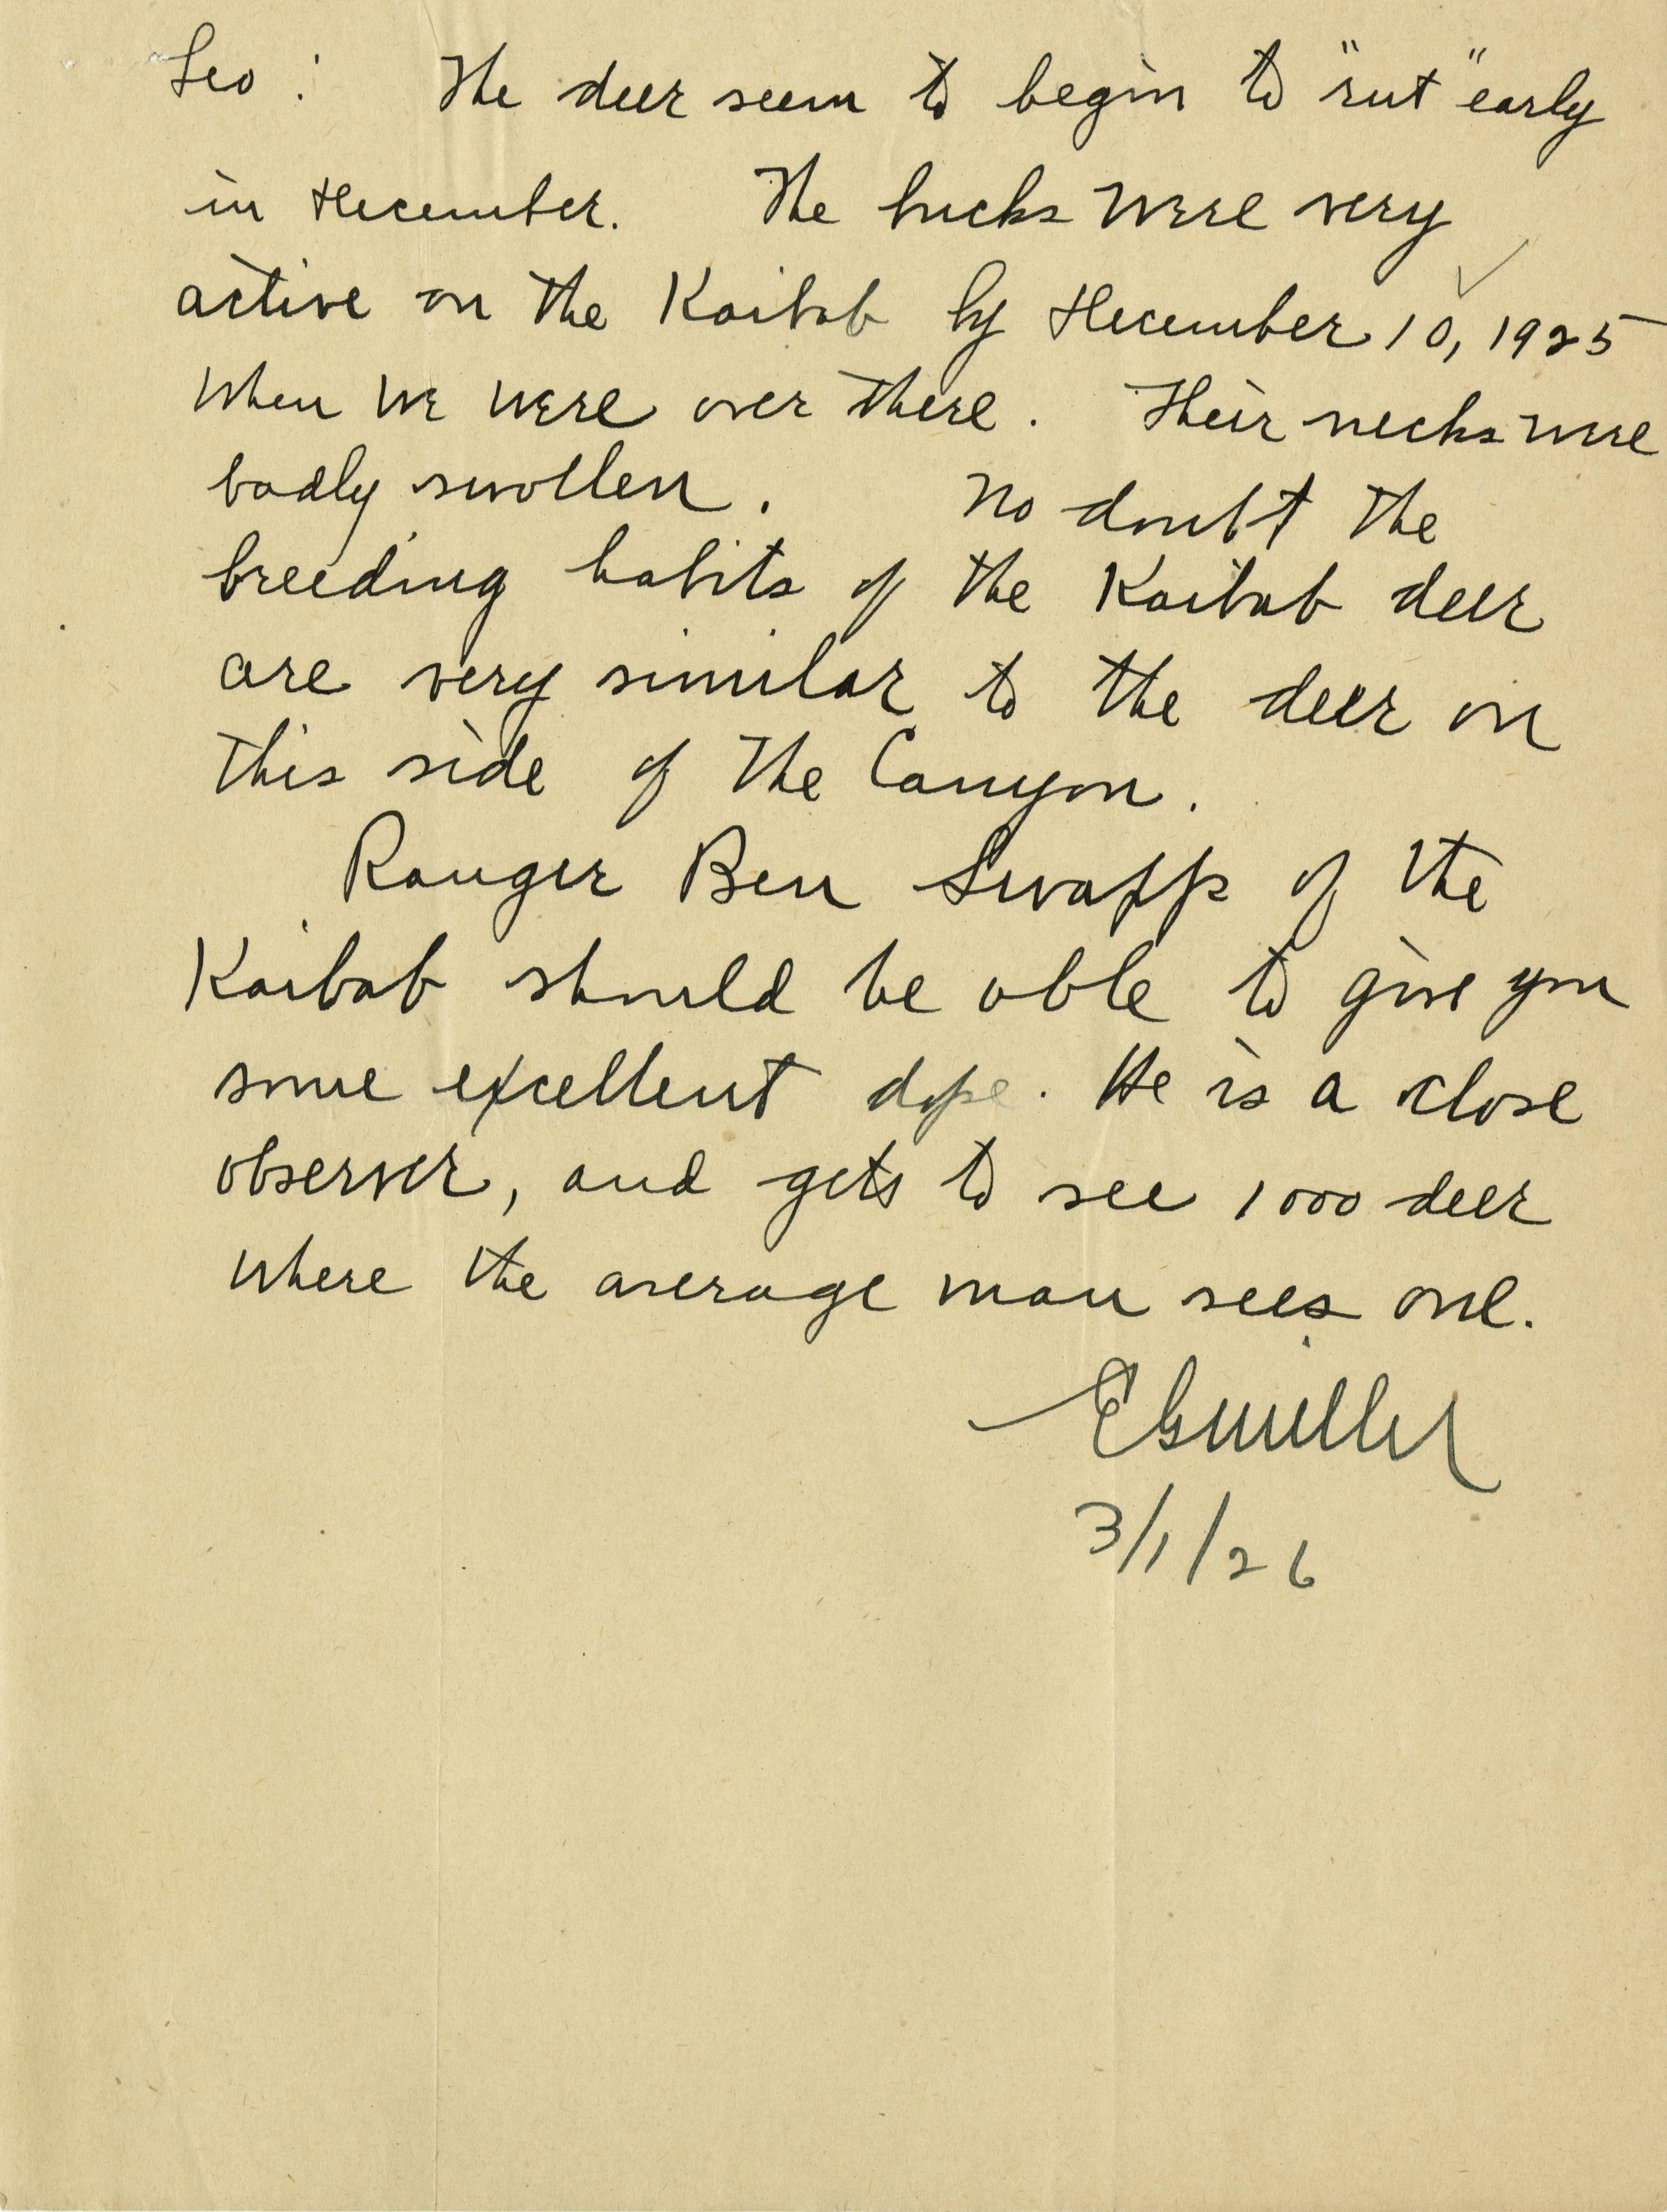 Leo: The deer seem to begin to "rut" early
in December. The bucks were very
active on the Kaibab by December 10, 1925
when we were over there. Their necks were
badly swollen. No doubt the
breeding habits of the Kaibab deer
are very similar to the deer on
this side of the Canyon.
Ranger Ben Swapp of the
Kaibab should be able to give you
some excellent dope. He is a close
observer, and gets to see 1000 deer
where the average man sees one.
EGMiller
3/1/26